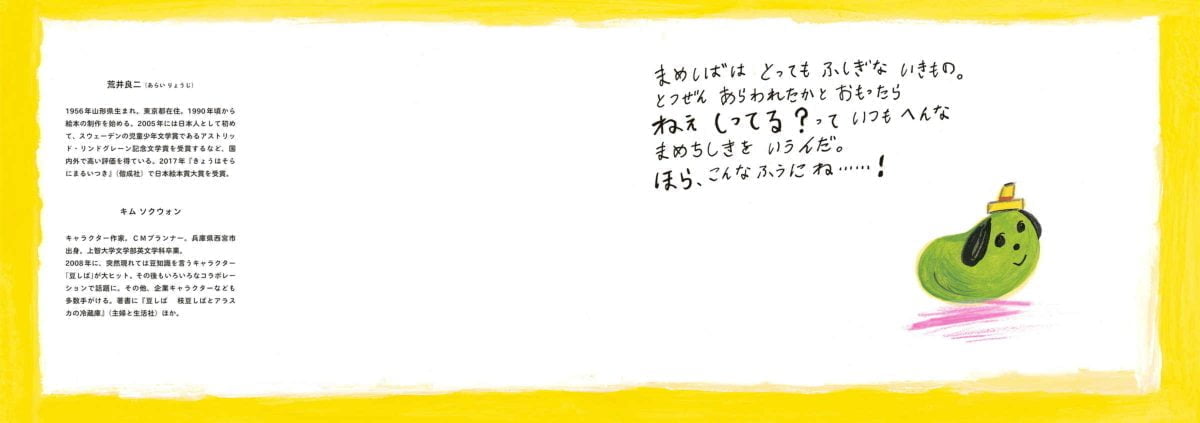 荒井良二（あらい りょうじ）
1956年山形県生まれ。東京都在住。1990年頃から
絵本の制作を始める。2005年には日本人として初め
て、スウェーデンの児童少年文学賞であるアストリッ
ド・リンドグレーン記念文学賞を受賞するなど、国
内外で高い評価を得ている。2017年『きょうはそら
にまるいつき』（偕成社）で日本絵本賞大賞を受賞。
キム ソクウォン
キャラクター作家。CMプランナー。兵庫県西宮市
出身。上智大学文学部英文学科卒業。
2008年に、突然現れては豆知識を言うキャラクター
「豆しば」が大ヒット。その後もいろいろなコラボレー
ションで話題に。その他、企業キャラクターなども
多数手がける。著書に『豆しば 枝豆しばとアラス
カの冷蔵庫』（主婦と生活社）ほか。
まめしばは とっても ふしぎな いきもの。
とつぜん あらわれたかと おもったら
ねぇ しってる？って いつも へんな
まめちしきを いうんだ。
ほら、こんなふうにね……！